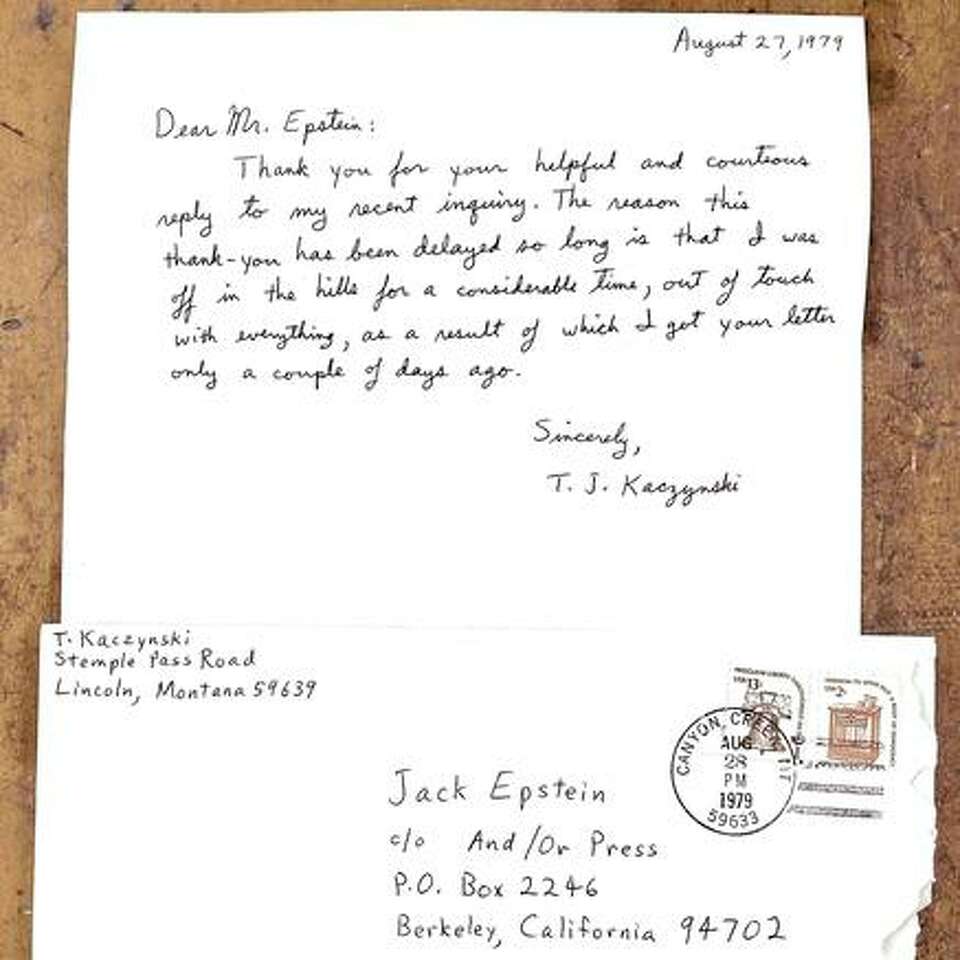 August 27, 1979
Dear Mr. Epstein:
Thank you for your helpful and courteous
reply to my recent inquiry. The reason this
thank-you has been delayed so long is that I was
off in the hills for a considerable time, out of touch
with everything, as a result of which I got your letter
only a couple of days ago.
Sincerely,
T. J. Kaczynski
T. Kaczynski
Stemple Pass Road
Lincoln, Montana 59639
USA 13c
USA 2c
CANYON CREEK, MT
AUG
28
PM
1979
59633
Jack Epstein
c/o And/Or Press
P.O. Box 2246
Berkeley, California 94702